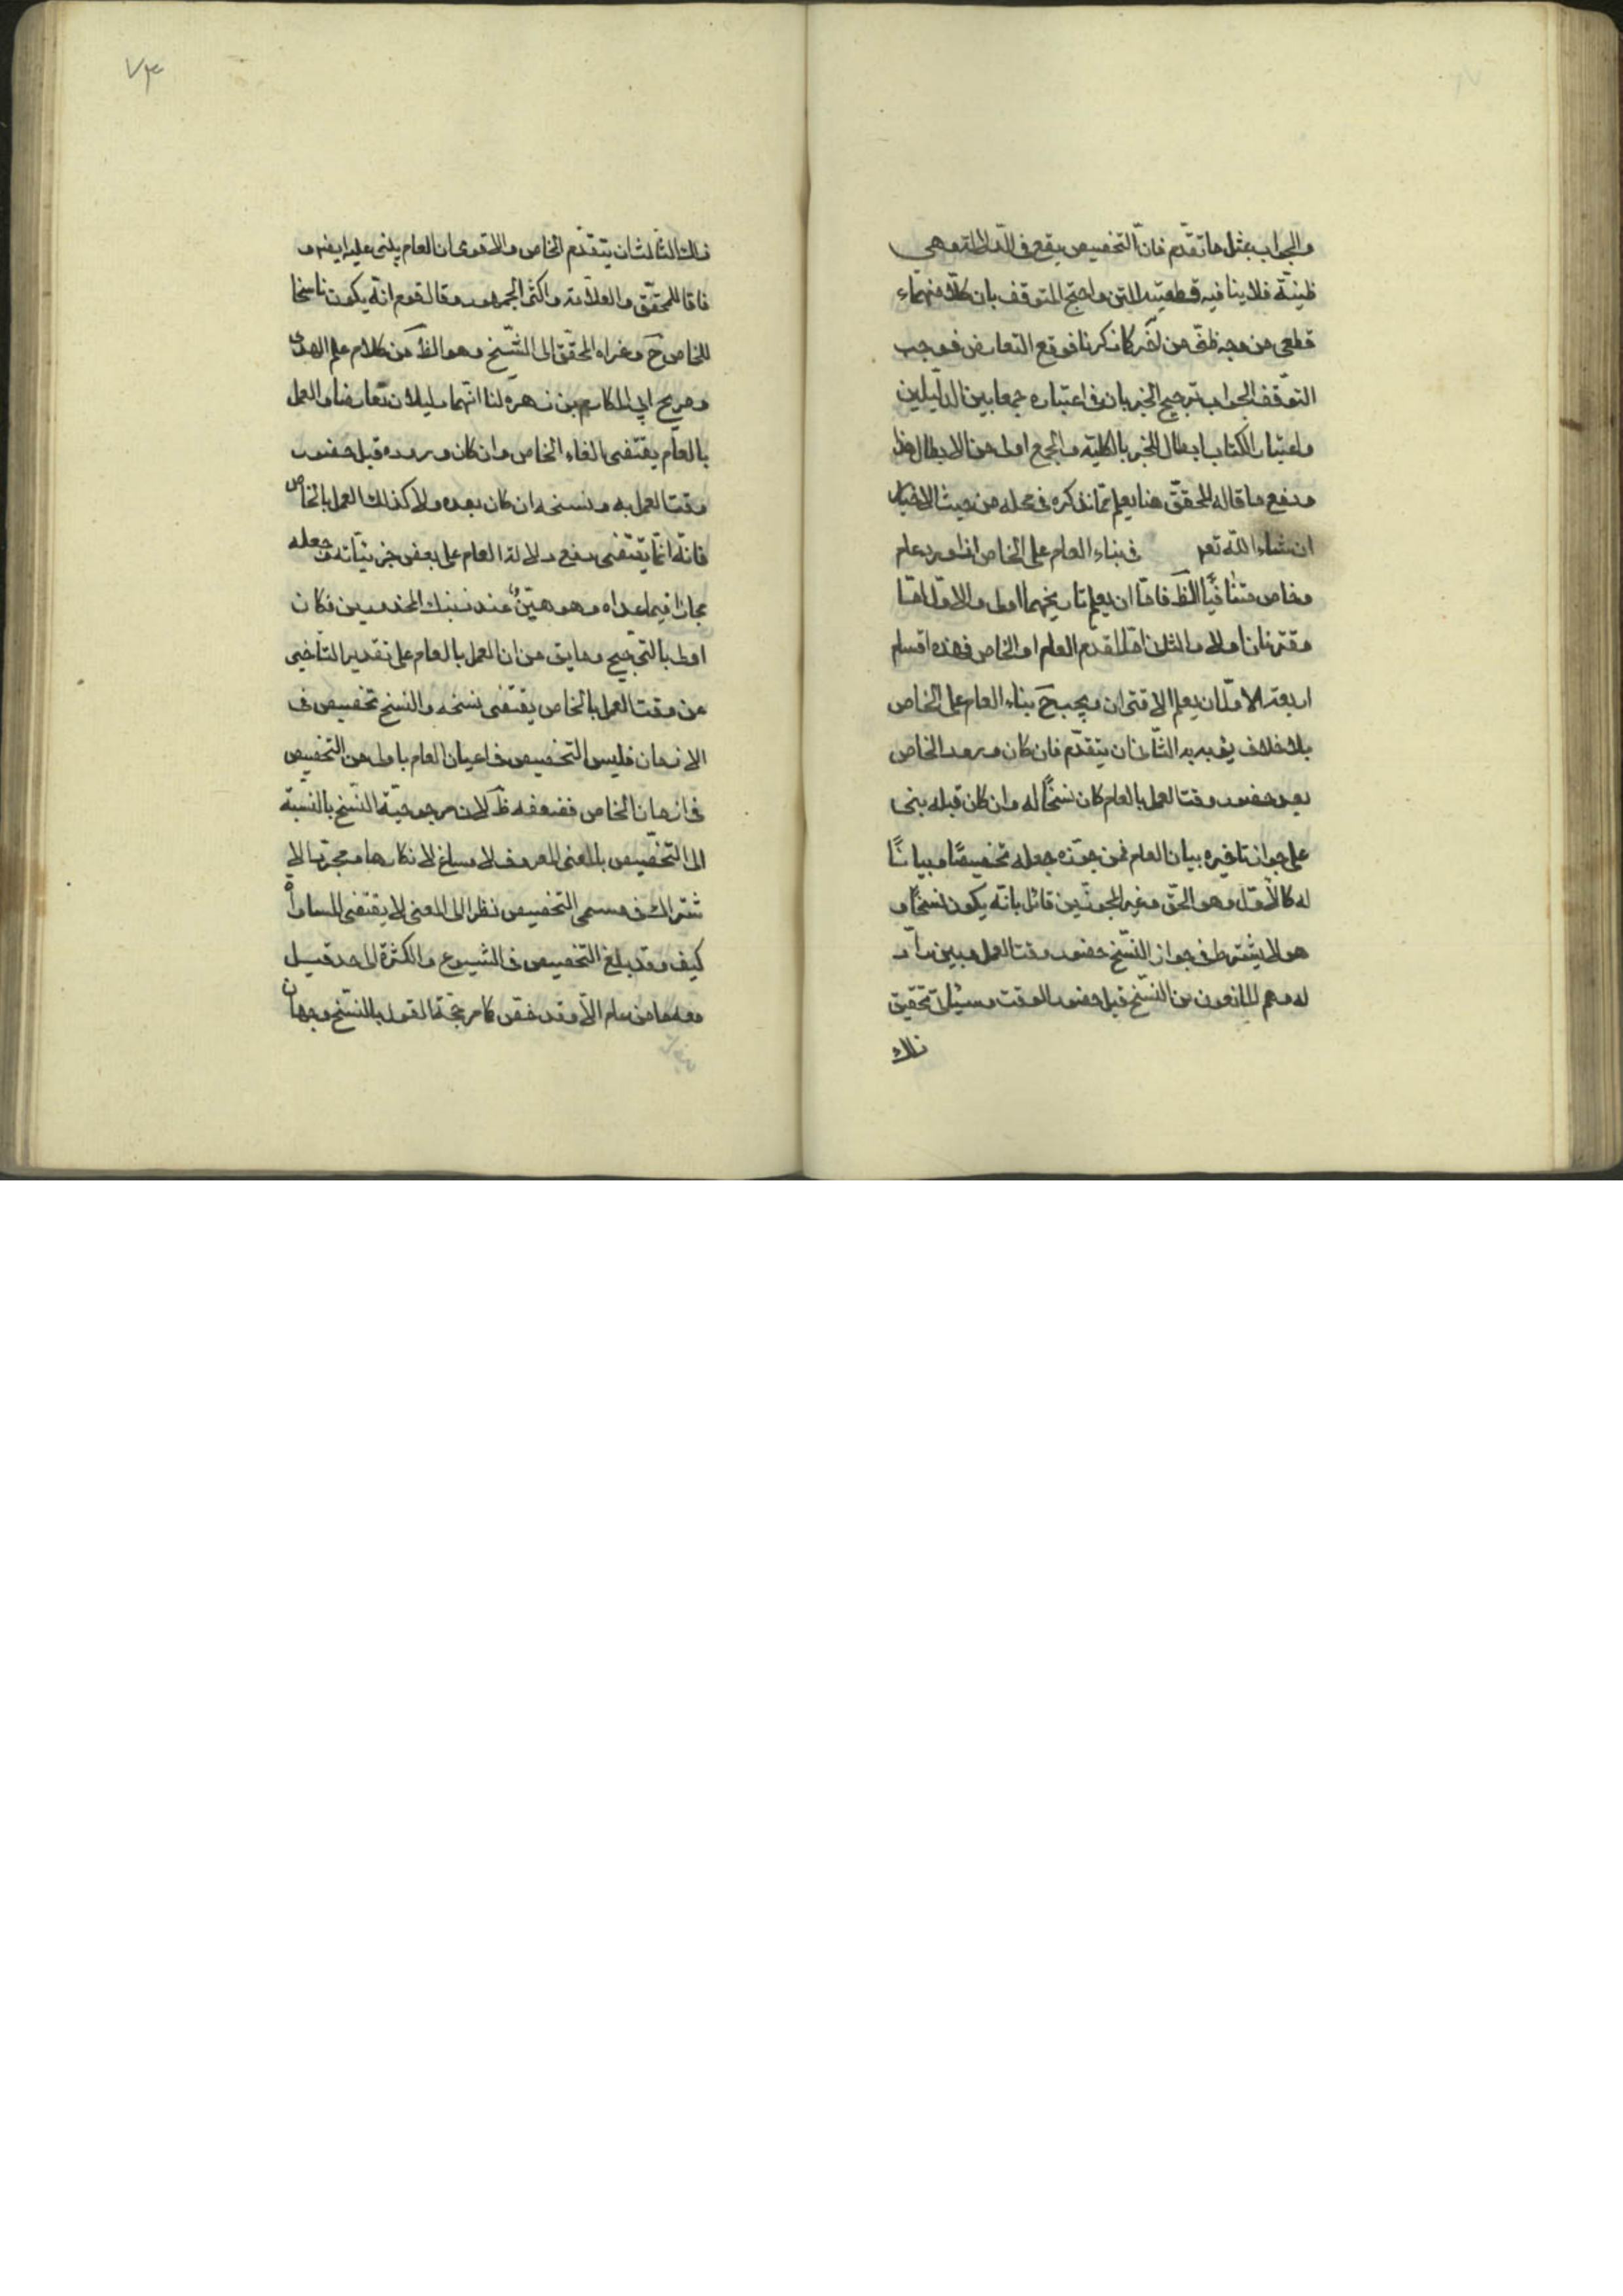 والجواب بمثل ما تقدّم فانّ التخصيص يقع فى الدّلالة وهى
ظنيّة فلا ينافيه قطعيّة المتن واحتج المتوقف بان كلّا منهما
قطعى من وجه ظنّى من اخر كما ذكرنا فوقع التعارض فوجب
التوقّف والجواب ترجيح الخبر بان فى اعتباره جمعا بين الدّليلين
واعتبار الكتاب ابطال للخبر بالكلية والجمع اولى من الابطال
ودفع ما قاله المحقّق هنا يعلم ممّا نذكره فى محله من بحث الاخبار
ان شاء اللّه تع فى بناء العام على الخاص اذا ورد عام
وخاص متنافيا الظّ فامّا ان يعلم تاريخهما اولا والاوّل امّا
مقترنان اولا والثانى امّا ان يقدم العام او الخاص فهذه اقسام
اربعة الاوّل ان يعلم الاقتران ويجب ح بناء العام على الخاص
بلا خلاف يعبؤ به الثّانى ان يتقدّم فان كان ورود الخاص
بعد حضور وقت العمل بالعام كان نسخًا له وان كان قبله بنى
على جواز تاخيره بيان العام فمن جوّزه جعله تخصيصًا وبيانًا
له كالأوّل وهو الحقّ وغير المجوّزين قائل بانّه يكون نسخًا و
هو لا يشترط فى جواز النّسخ حضور وقت العمل وبين رادّ
له وهم المانعون من النّسخ قبل حضور الوقت وسيأتى تحقيق
ذلك
٧٣
ذلك الثّالث ان يتقدّم الخاص والاقوى ان العام يبنى عليه ايضا و
فاقا للمحقّق والعلّامة واكثر الجمهور وقال قوم انّه يكون ناسخا
للخاص ح وعزاه المحقّق الى الشّيخ وهو الظّ من كلام علم الهدى
وصريح ابى المكارم بن زهرة لنا انّهما دليلان تعارضا والعمل
بالعامّ يقتضى الغاء الخاص وان كان وروده قبل حضور
وقت العمل به ونسخه ان كان بعده ولا كذلك العمل بالخاص
فانّه انّما يقتضى دفع دلالة العام على بعض جزئيّاته وجعله
مجازا فيما عداه وهو هيّن عند ذينك المحذورين فكان
اولى بالترجيح وما يق من ان العمل بالعام على تقدير التأخير
عن وقت العمل بالخاص يقتضى نسخه والنسخ تخصيص فى
الازمان فليس التخصيص فى اعيان العام باولى من التخصيص
فى ازمان الخاص فضعفه ظّ لان مرجوحيّة النّسخ بالنّسبة
الى التخصيص بالمعنى المعروف لا مساغ لانكارها ومجرّد الا
شتراك فى مسمى التخصيص نظرا الى المعنى لا يقتضى المساواة
كيف وقد بلغ التخصيص فى الشيوع والكثرة الى حد قيل
معه ما من عام الّا وقد خصّ كما مر حجّة القول بالنّسخ وجهان